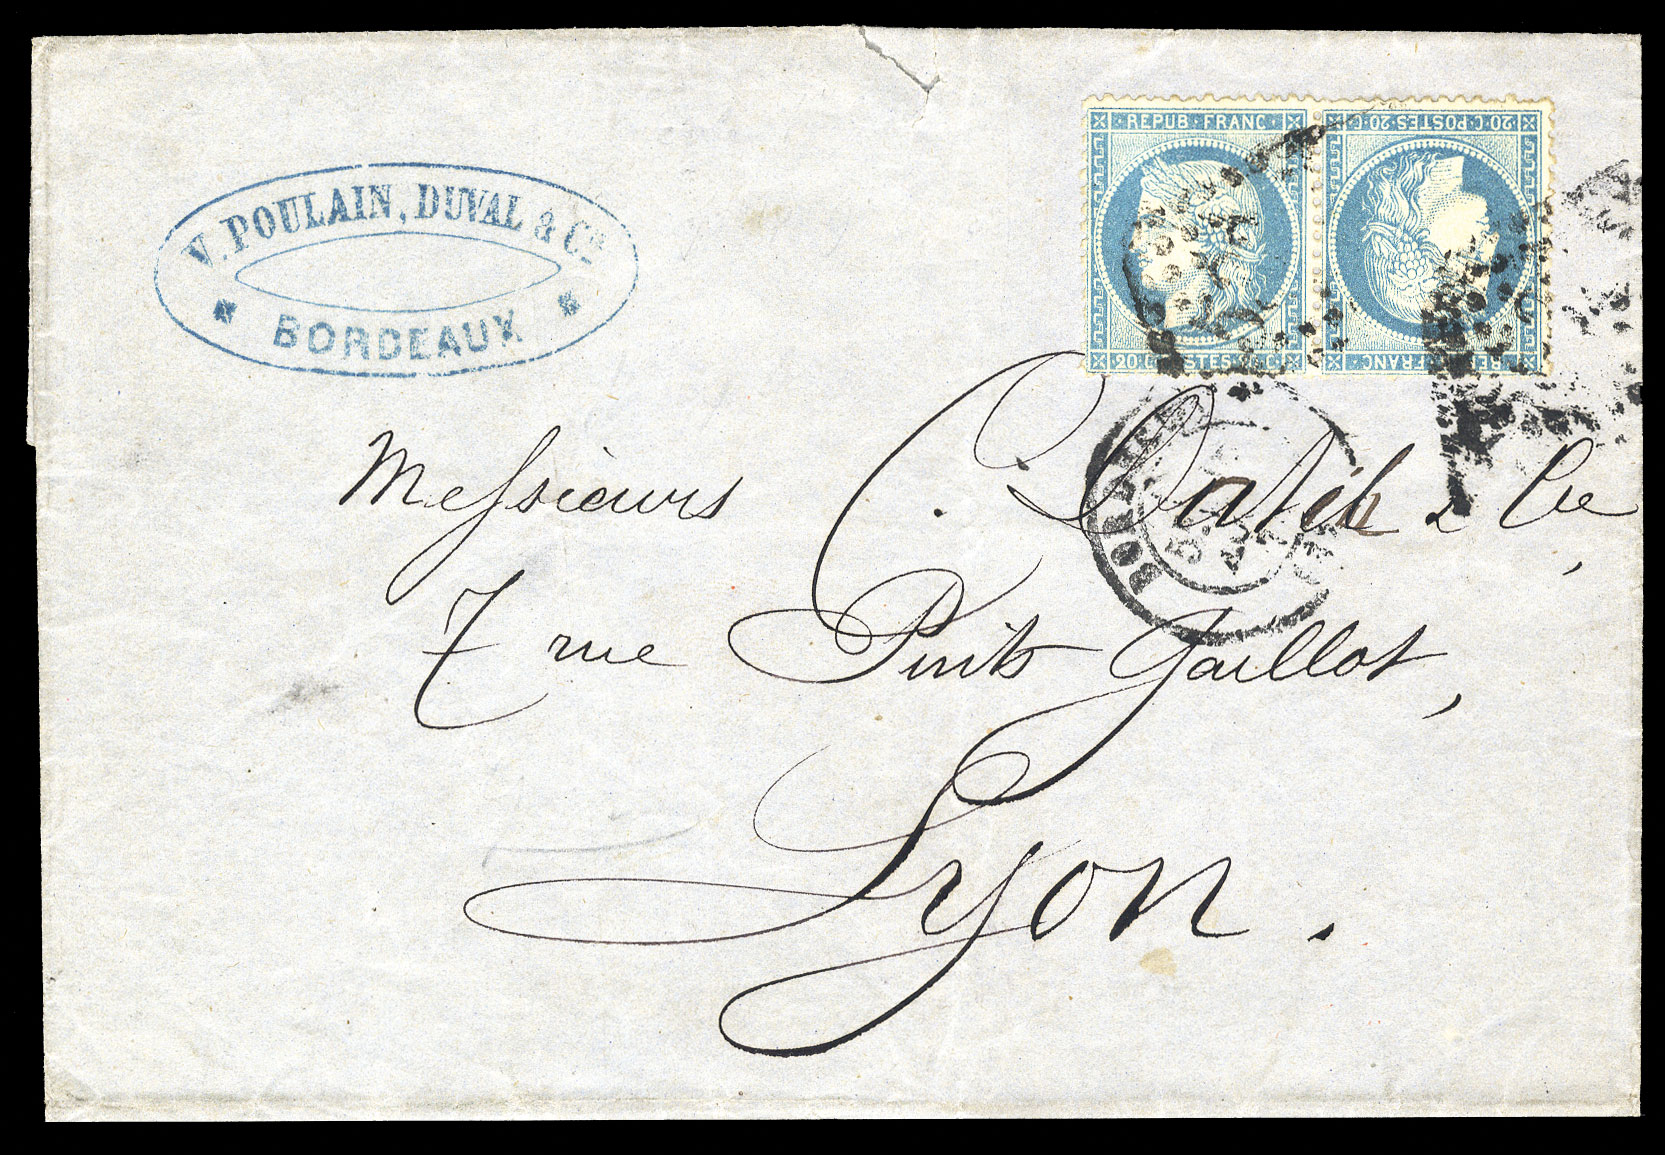 V. POULAIN, DUVAL & Cie
BORDEAUX
REPUB·FRANC·
20·C·POSTES·20·C·
20·C·POSTES·20·C·
REPUB·FRANC·
BORDEAUX
Messieurs C. & Cie,
7 rue Puits Gaillot,
Lyon.